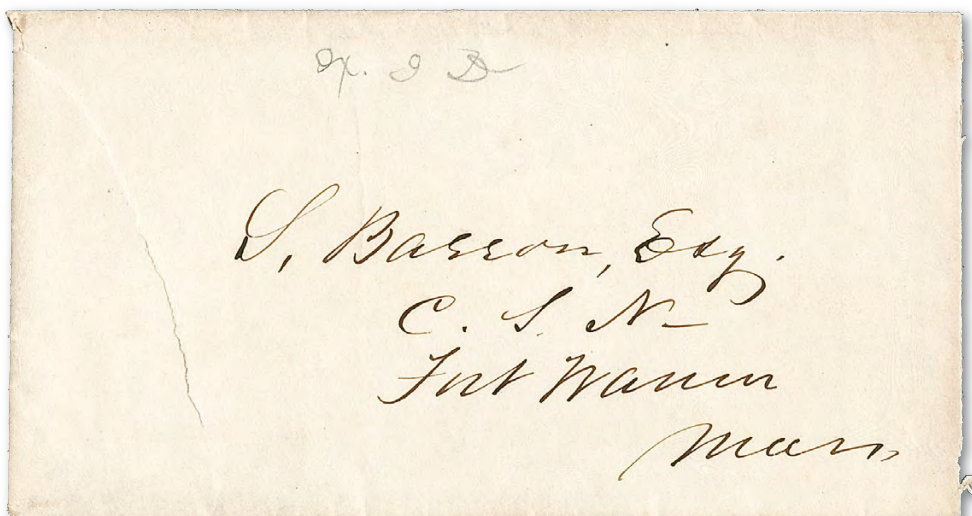 S. Barron, Esq.
C. S. N–
Fort Warren
Mass